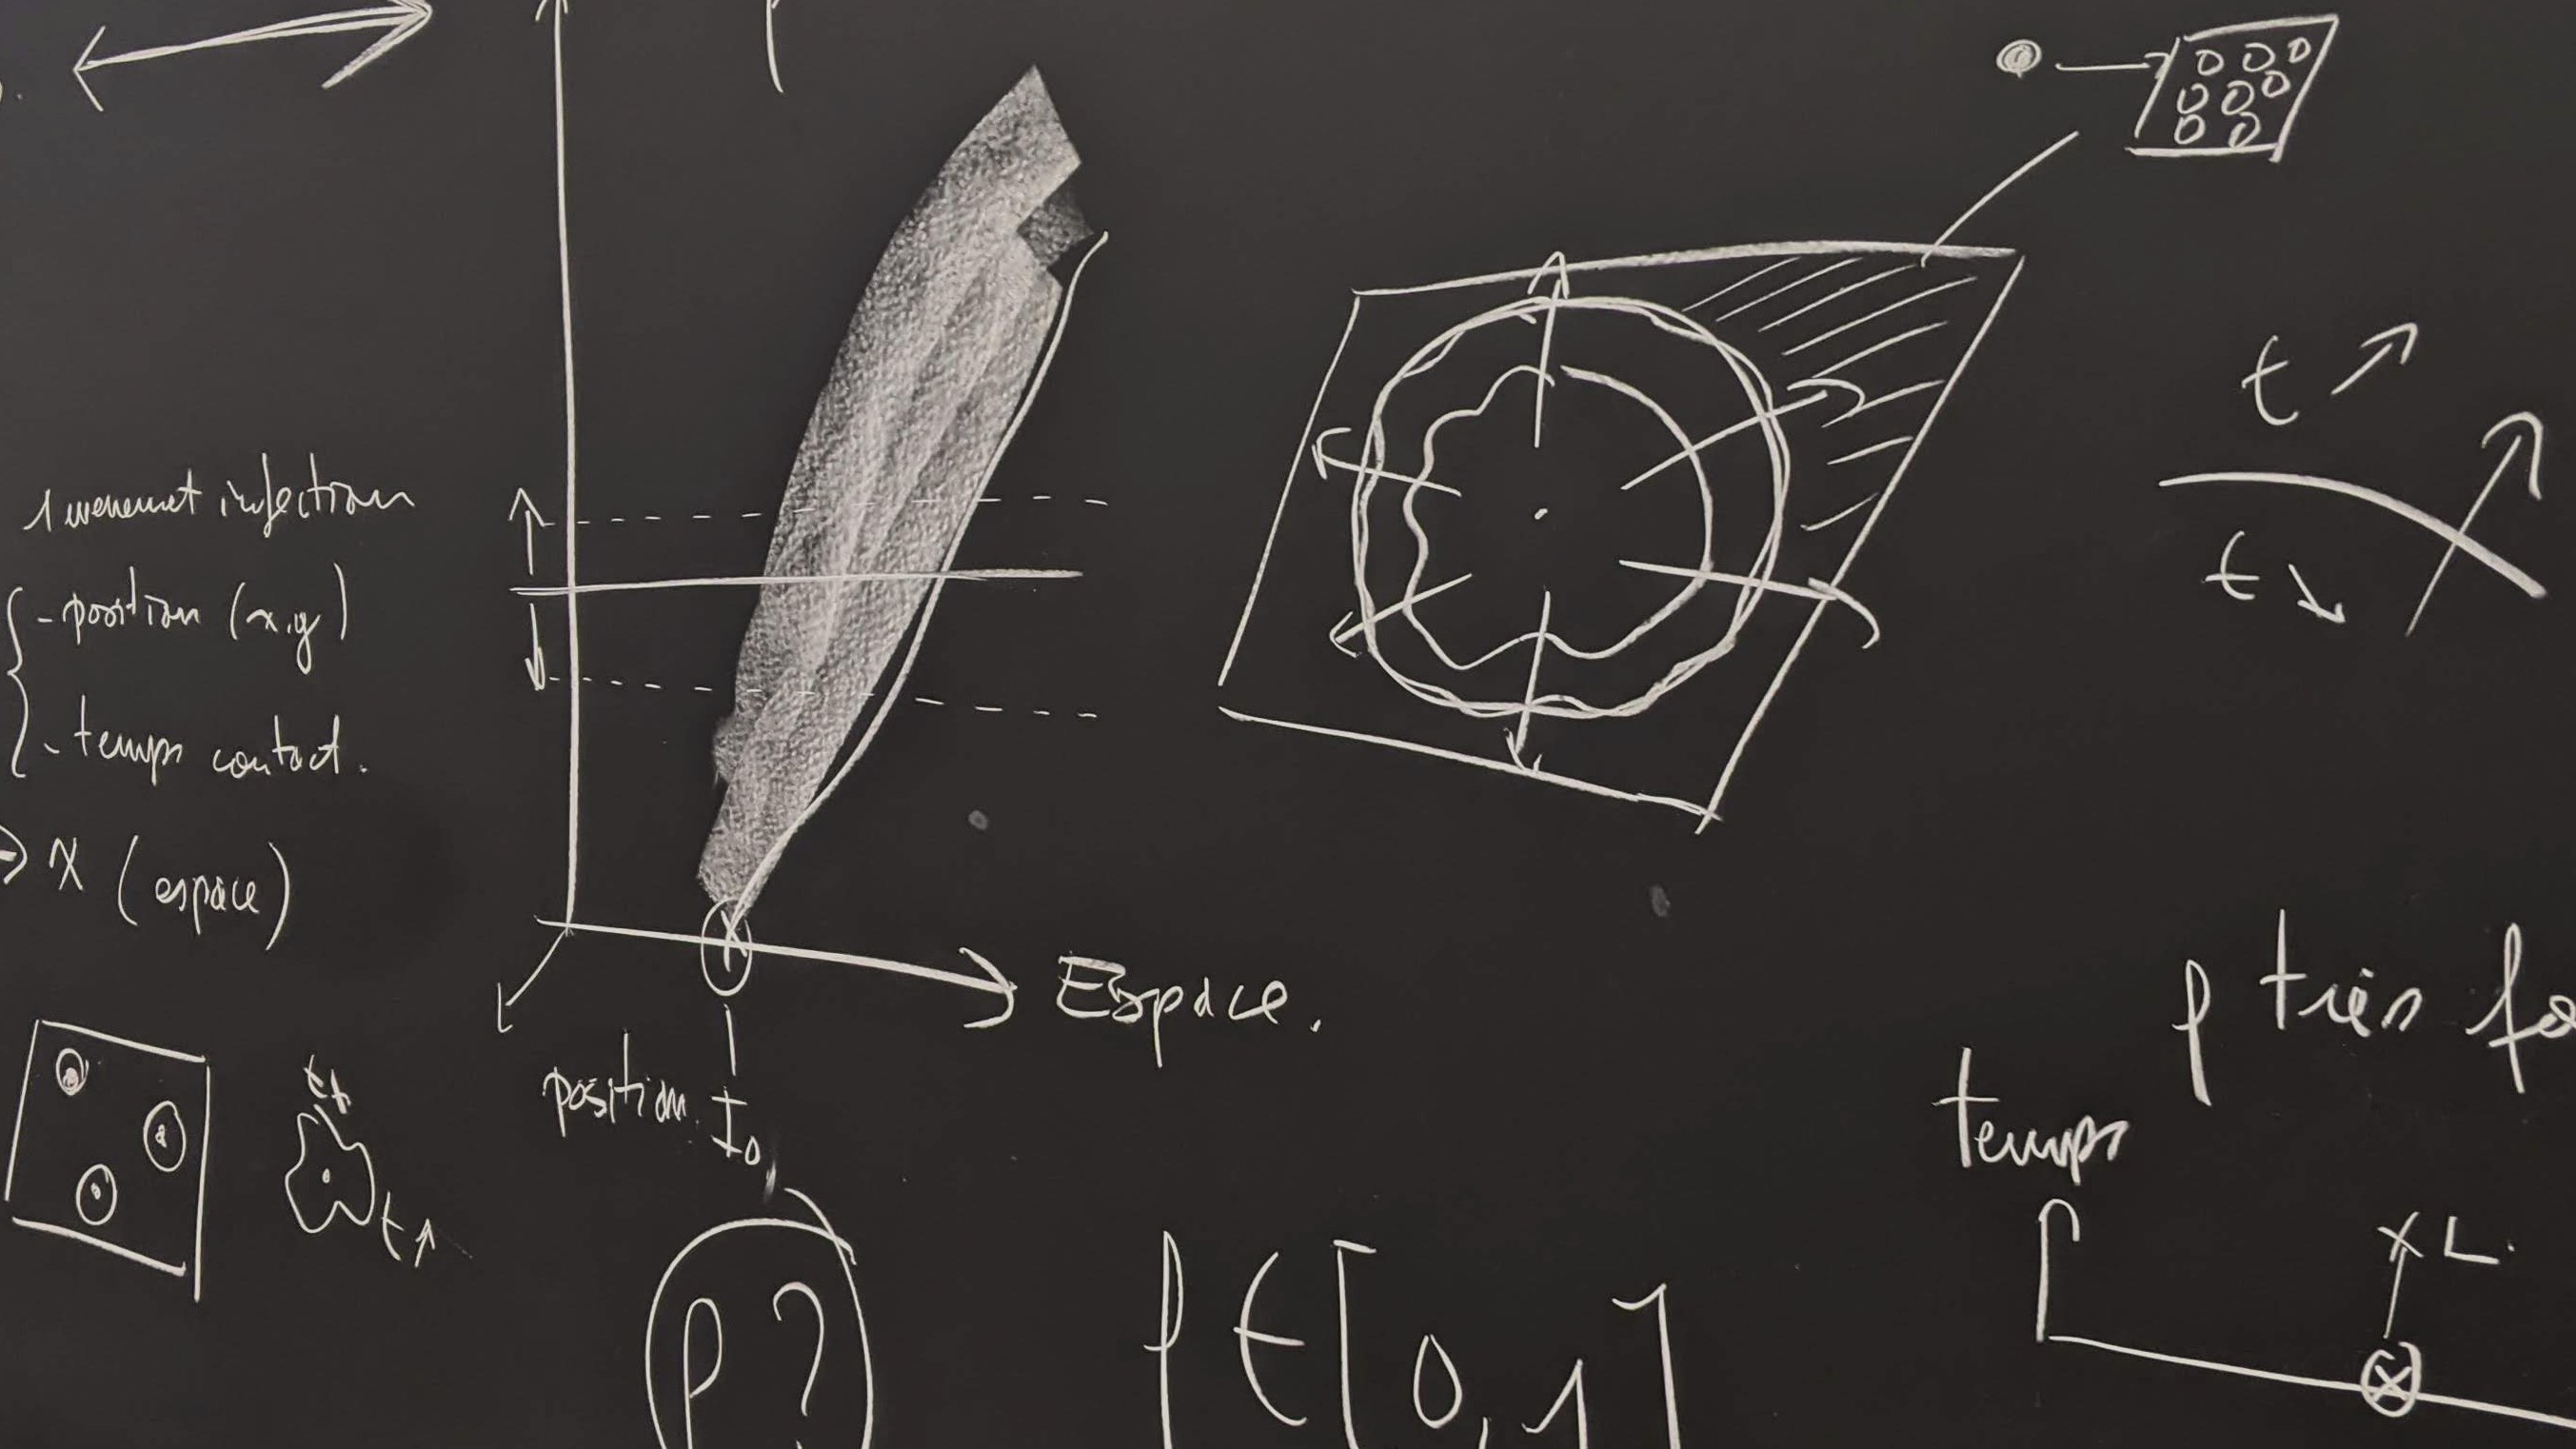 1 evenement infection
- position (x,y)
- temps contact.
=> X (espace)
t ↗
t ↘
Espace.
position I₀
t↑
t↑
ρ très fo
temps
x L.
ρ ?
ρ ∈ [0,1]